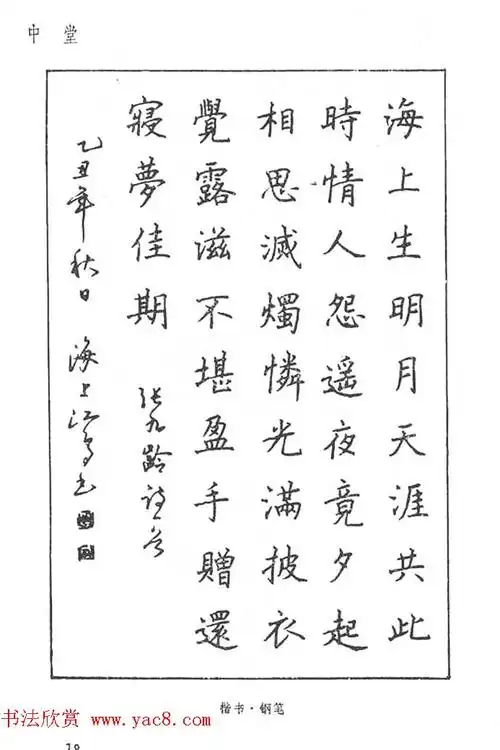 中堂
海上生明月天涯共此
時情人怨遥夜竟夕起
相思滅燭憐光滿披衣
覺露滋不堪盈手贈還
寢夢佳期
张九龄诗一首
乙丑年秋日 海上江鸟書
楷书·钢笔
书法欣赏 www.yac8.com